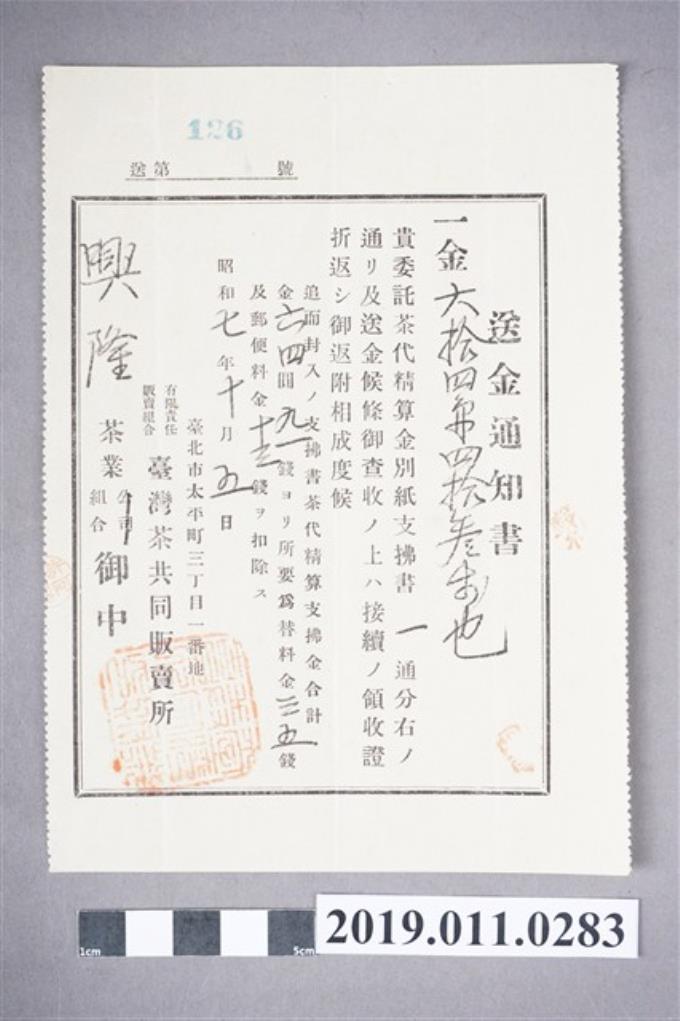 126
送第 號
送金通知書
一金六拾四円四拾叁銭也
貴委託茶代精算金別紙支拂書一通分右ノ
通リ及送金候條御査收ノ上ハ接續ノ領收證
折返シ御返附相成度候
追而封入ノ支拂書茶代精算支拂金合計
金六四圓九一錢ヨリ所要爲替料金三五錢
及郵便料金十三錢ヲ扣除ス
昭和七年十月五日
臺北市太平町三丁目一番地
有限責任
販賣組合
臺灣茶共同販賣所
興隆茶業
公司
組合
御中
2019.011.0283
1cm
5cm